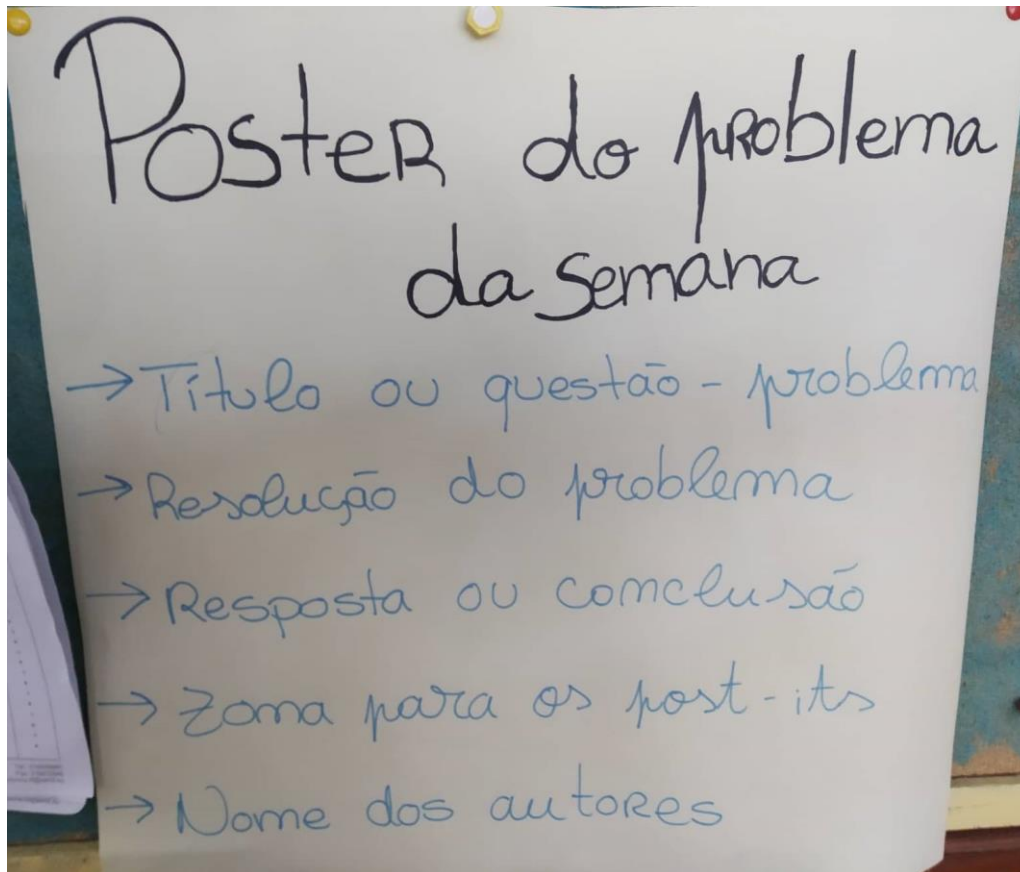 Poster do problema
da semana
→ Título ou questão - problema
→ Resolução do problema
→ Resposta ou conclusão
→ Zona para os post-its
→ Nome dos autores